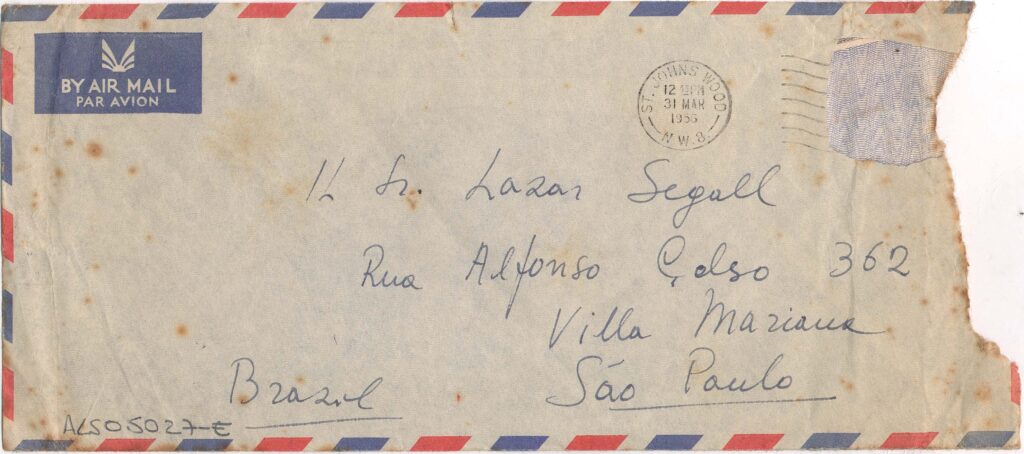 BY AIR MAIL
PAR AVION
ST. JOHNS WOOD
12 PM
31 MAR
1956
N.W.8.
Il Sr. Lazar Segall
Rua Alfonso Çelso 362
Villa Mariana
São Paulo
Brazil
ALS05027-E